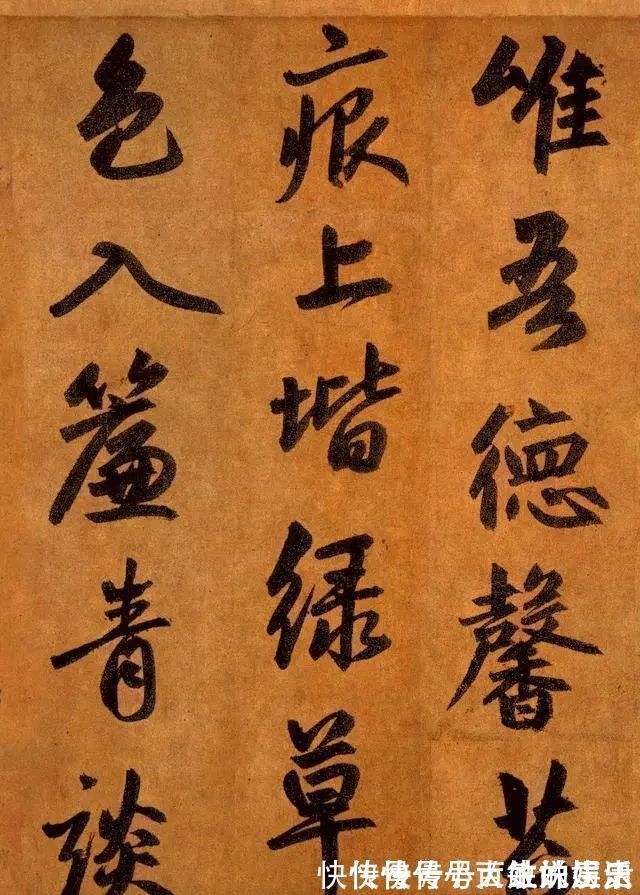 惟吾德馨苔
痕上堦緑草
色入簾青談